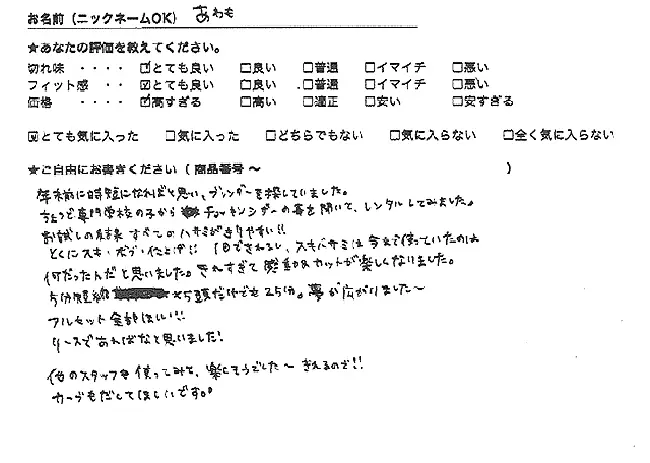 お名前（ニックネームOK） あわも
★あなたの評価を教えてください。
切れ味 ・・・・ ☑とても良い □良い □普通 □イマイチ □悪い
フィット感 ・・・・ ☑とても良い □良い □普通 □イマイチ □悪い
価格 ・・・・ ☑高すぎる □高い □適正 □安い □安すぎる
☑とても気に入った □気に入った □どちらでもない □気に入らない □全く気に入らない
★ご自由にお書きください（商品番号〜 ）
年末前に時短になればと思い、ブレンダーを探していました。
ちょうど専門学校の子から の事を聞いて、レンタルしてみました。
お試しの結果 すべてのハサミが きりやすい!!
とくにスキ・ボブ・仕上げ!! 1日でされるし、スキバサミは今まで使っていたのは
何だったんだと思いました。きれすぎて 感動&カットが楽しくなりました。
5頭だけで 25分。夢が広がりました〜
フルセット全部ほしい!!
リースであればなと思いました!
他のスタッフも使ってみて、楽しそうでした〜 きえるので!!
カーブもだしてほしいです。